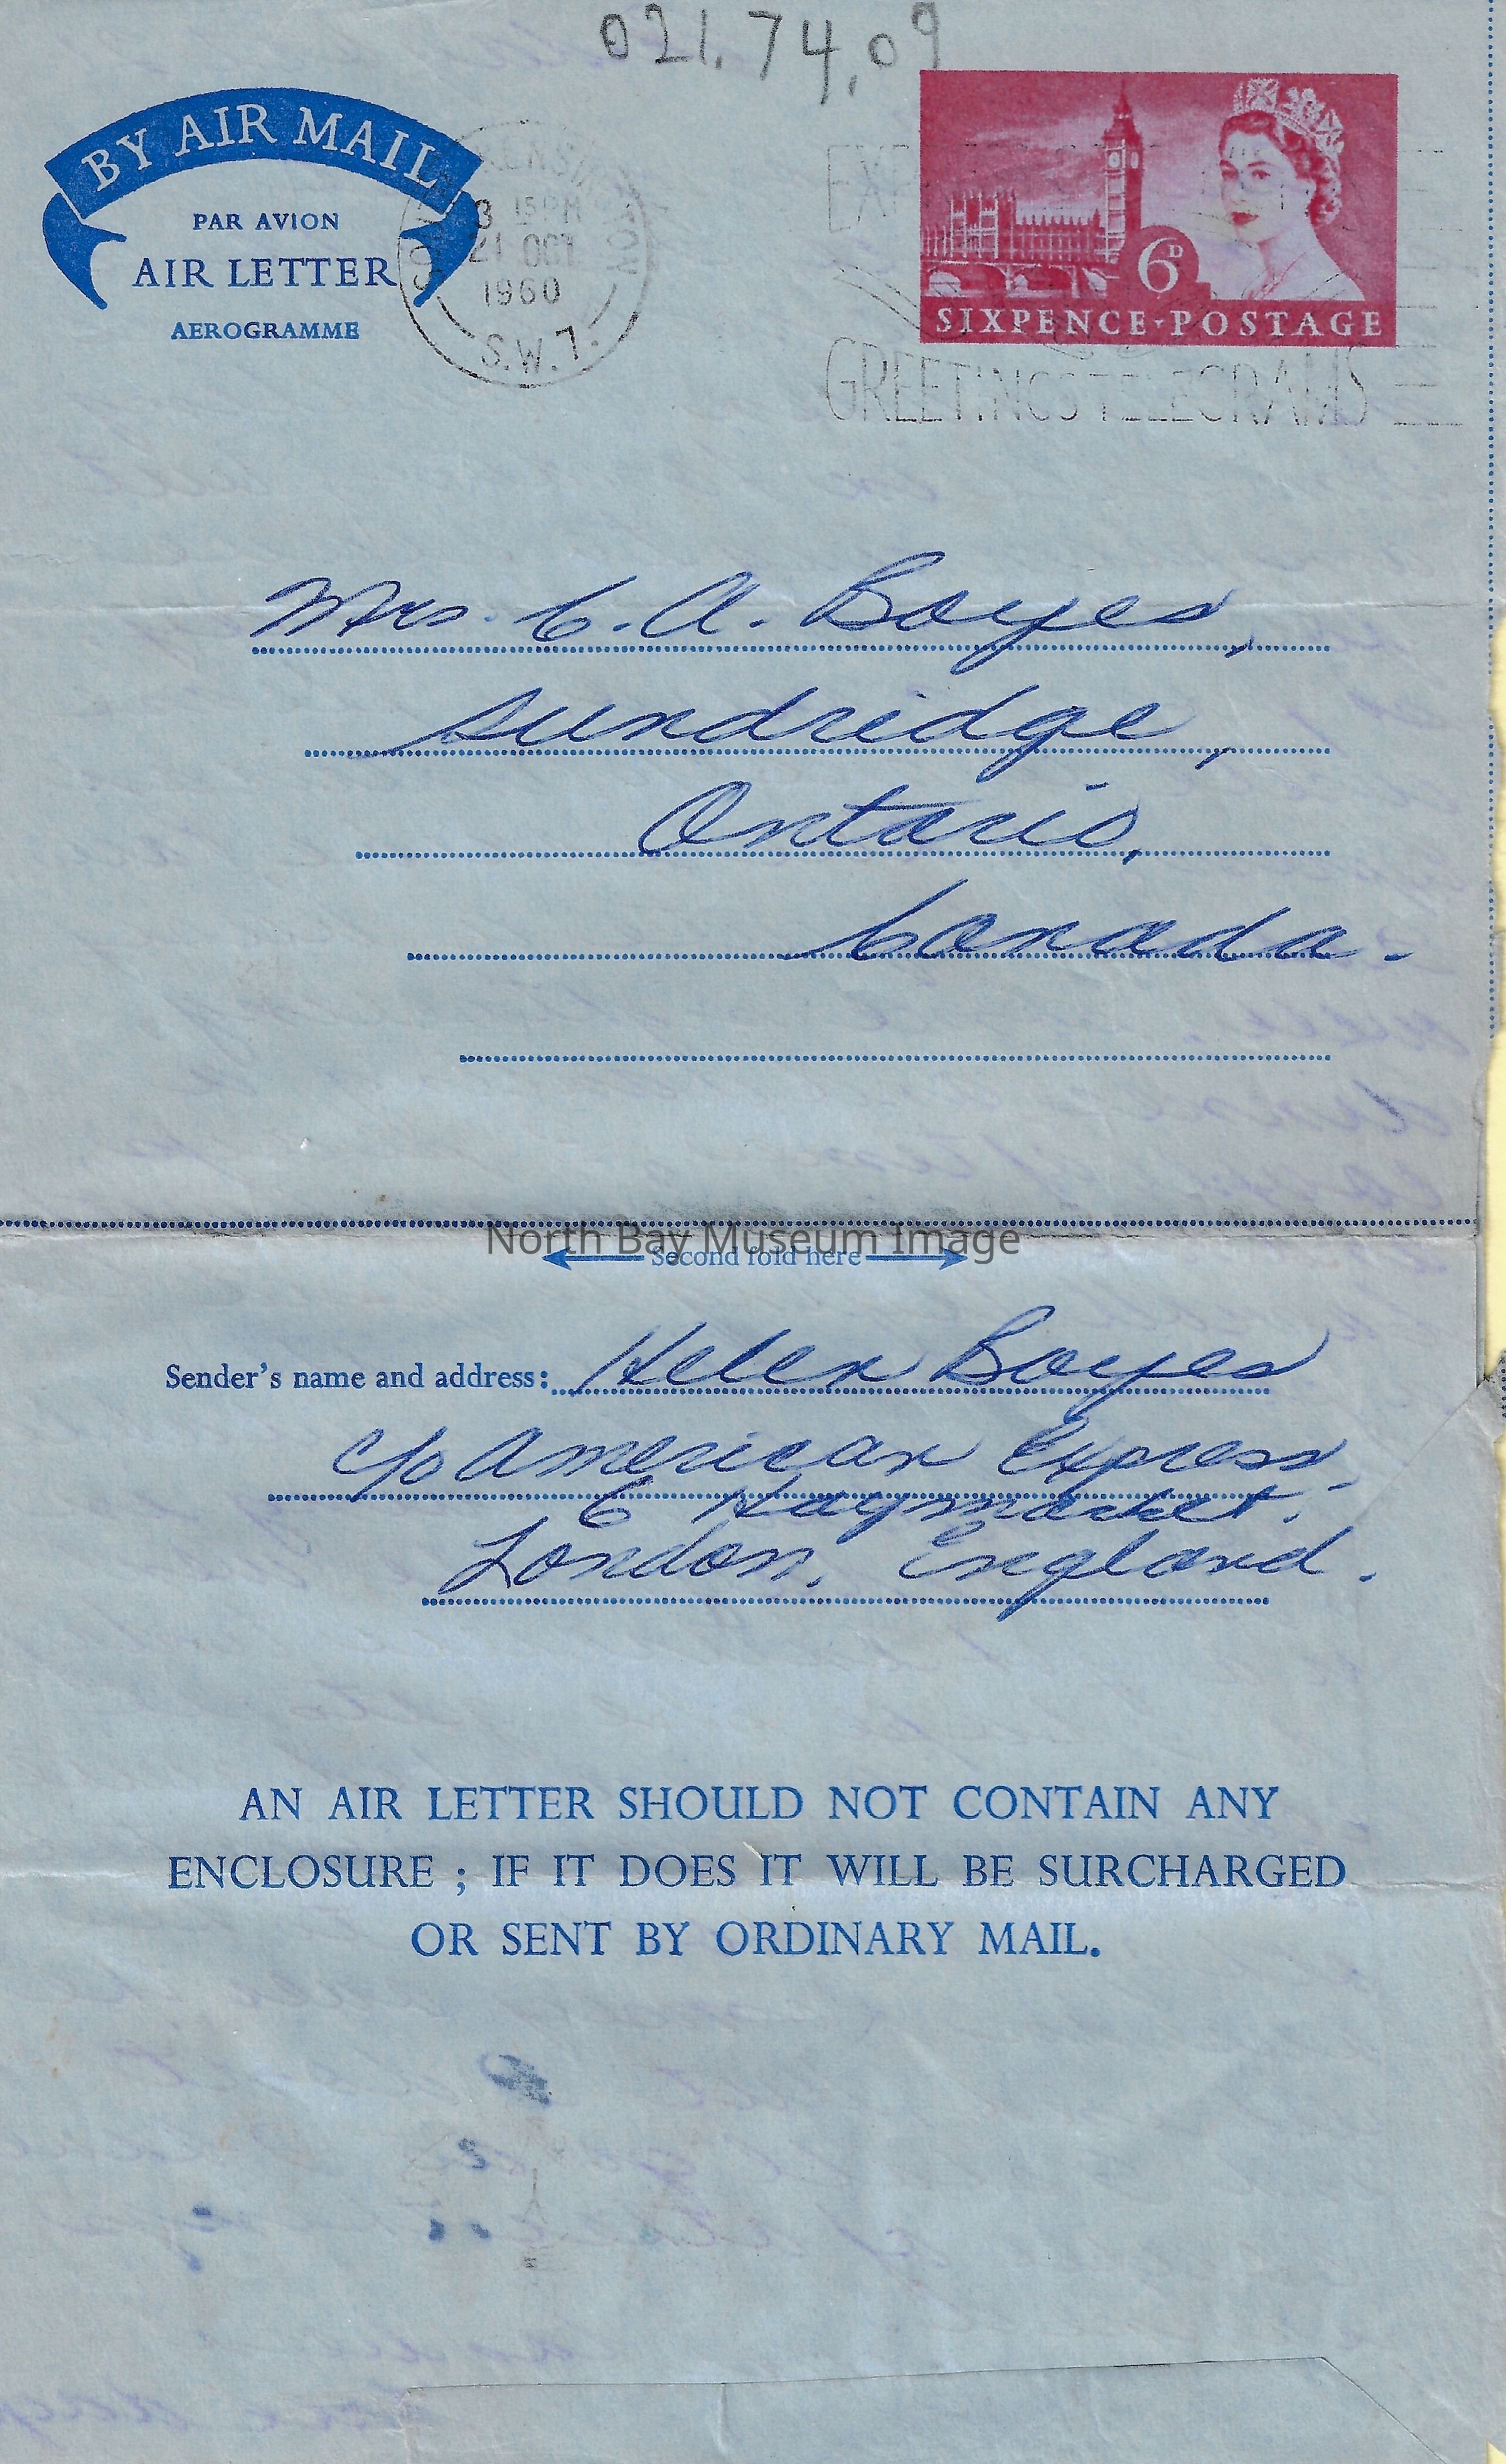 021.74.09
BY AIR MAIL
PAR AVION
AIR LETTER
AEROGRAMME
3 15PM
21 OCT
1960
S.W.7.
6D
SIXPENCE·POSTAGE
GREETINGS TELEGRAMS
Mrs. C. A. Boyes,
Sundridge,
Ontario,
Canada.
North Bay Museum Image
Second fold here
Sender's name and address: Helen Boyes
c/o American Express
6 Haymarket.
London, England.
AN AIR LETTER SHOULD NOT CONTAIN ANY
ENCLOSURE ; IF IT DOES IT WILL BE SURCHARGED
OR SENT BY ORDINARY MAIL.